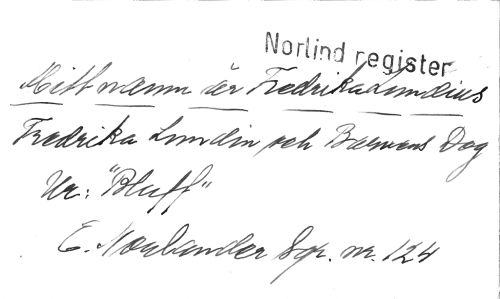 Norlind register
Mitt namn är Fredrika Lundins
Fredrika Lundin och Barnens Dag
Ur: "Bluff"
E. Norlander Sgr. nr. 124